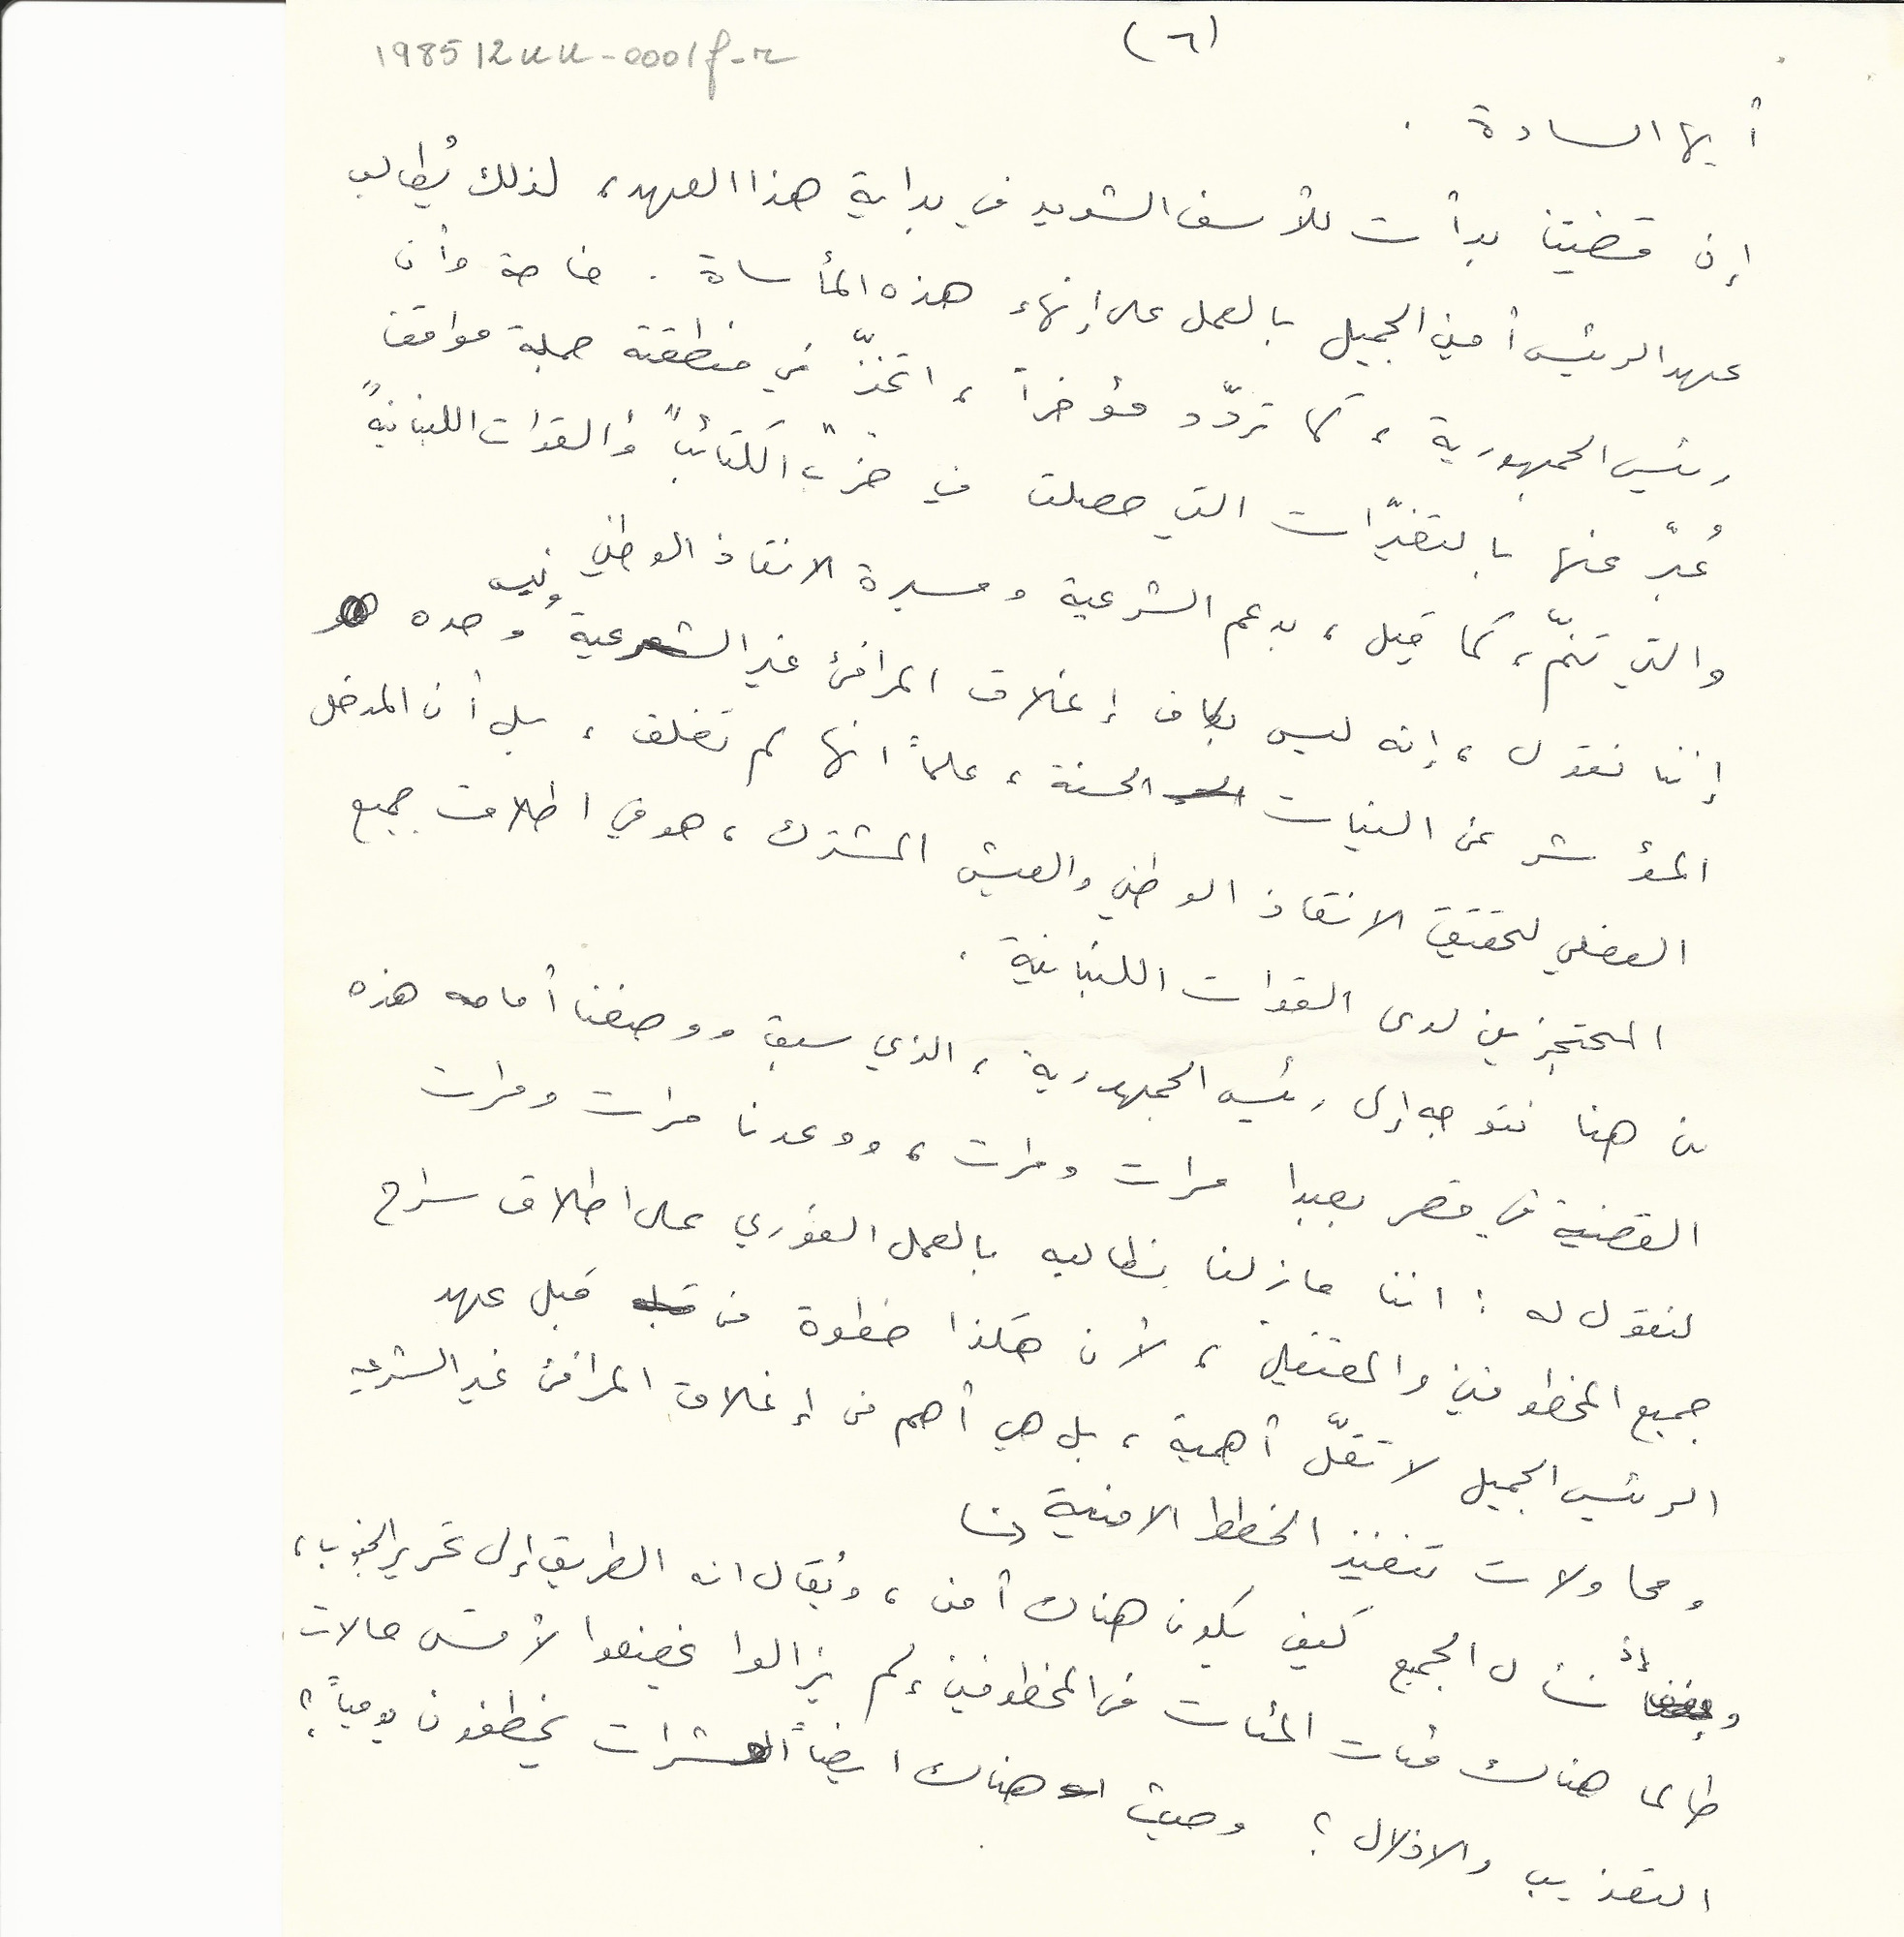 (٦)
198512uu-0001f-r
أيها السادة .
إن قضيتنا بدأت للأسف الشديد في بداية هذا العهد، لذلك يُطالب
عهد الرئيس أمين الجميل بالعمل على إنهاء هذه المأساة . خاصة وأن
رئيس الجمهورية ، كما تردّد مؤخراً ، اتخذ في منطقته جملة مواقف
عُبّر عنها بالتغيّرات التي حصلت في حزب "الكتائب" و"القوات اللبنانية"
والتي تتمّ ، كما قيل ، بدعم الشرعية ومسيرة الانقاذ الوطني
إننا نقول ، إنه ليس بكاف إغلاق المرافئ غير الشرعية وليس وحده
المؤشر عن النيات الحسنة ، علماً انها لم تغلق ، بل أن المدخل
الفعلي لتحقيق الانقاذ الوطني والعيش المشترك ، هو في اطلاق جميع
المحتجزين لدى القوات اللبنانية .
من هنا نتوجه إلى رئيس الجمهورية ، الذي سبق ووضعنا أمامه هذه
القضية في قصر بعبدا مرات ومرات ، ووعدنا مرات ومرات
لنقول له : اننا مازلنا نطالبه بالعمل الفوري على اطلاق سراح
جميع المخطوفين والمعتقلين ، لأن هكذا خطوة من قبل عهد
الرئيس الجميل لا تقلّ أهمية ، بل هي أهم من إغلاق المرافئ غير الشرعية
ومحاولات تنفيذ الخطط الامنية
وإذ نسأل الجميع كيف يكون هناك أمن ، ويُقال انه الطريق إلى تحرير الجنوب ،
طالما هناك مئات المئات من المخطوفين لم يزالوا يخضعوا لأقسى حالات
التعذيب والاذلال ؟ وحيث هناك ايضاً العشرات يخطفون يومياً ؟